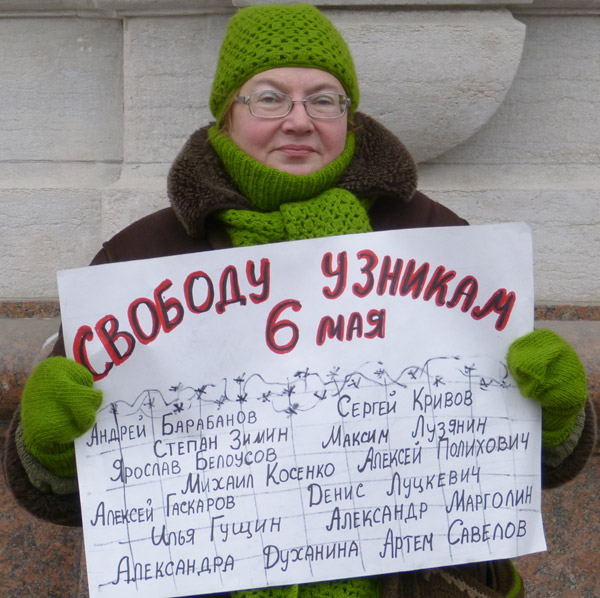 СВОБОДУ УЗНИКАМ
6 МАЯ
Андрей Барабанов Сергей Кривов
Степан Зимин Максим Лузянин
Ярослав Белоусов Алексей Полихович
Михаил Косенко Денис Луцкевич
Алексей Гаскаров Александр Марголин
Илья Гущин Артем Савелов
Александра Духанина